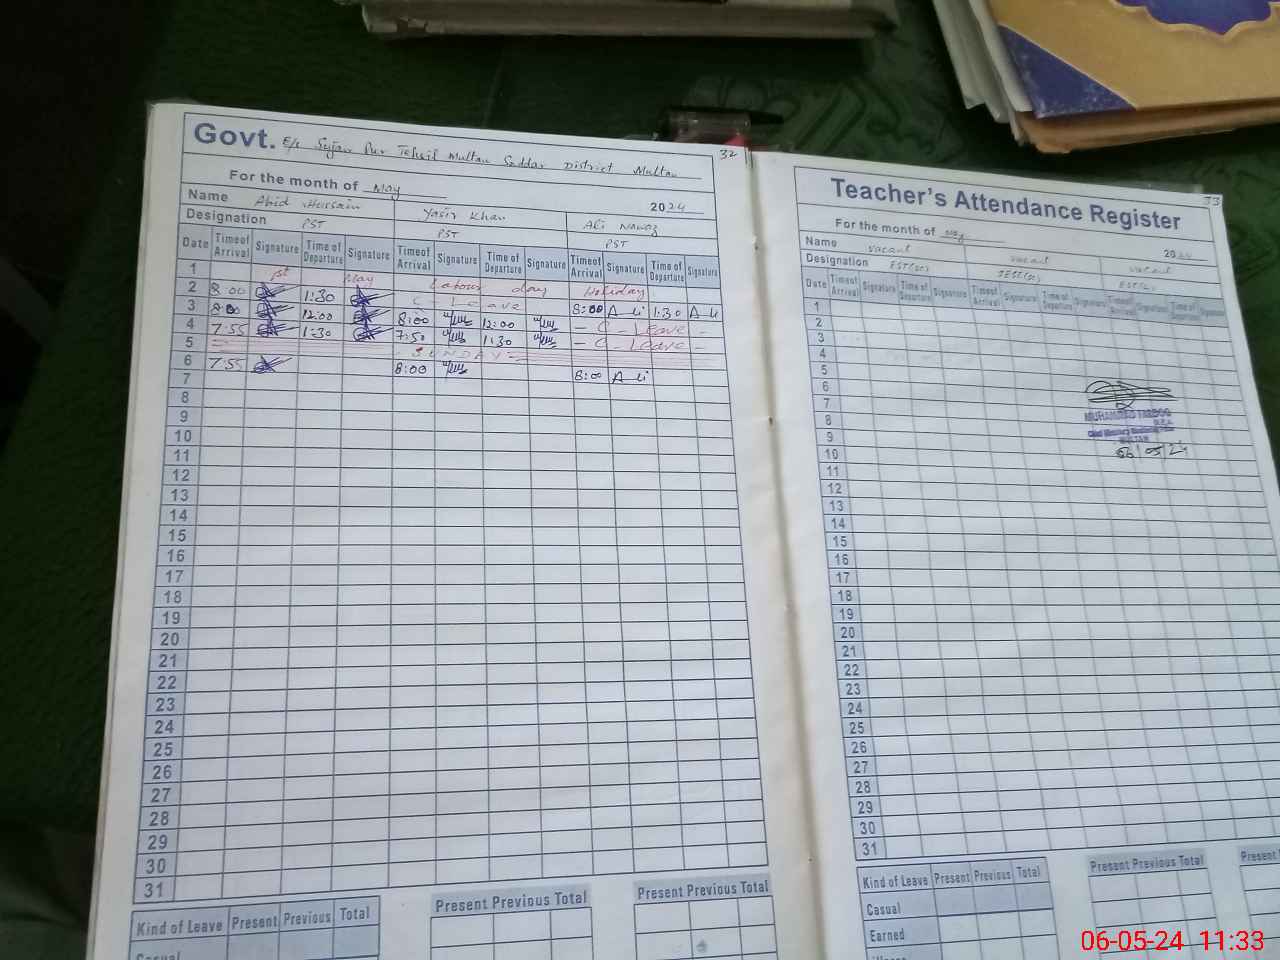 Govt. E/S Sujan Pur Tehsil Multan Saddar District Multan 32
For the month of May 2024
Name Abid Hussain Yasir Khan Ali Nawaz
Designation PST PST PST
Date Time of Arrival Signature Time of Departure Signature Time of Arrival Signature Time of Departure Signature Time of Arrival Signature Time of Departure Signature
1 1st May Labour day Holiday
2 8:00 1:30 C - Leave 8:00 Ali 1:30 Ali
3 8:00 12:00 8:00 12:00 - C - Leave -
4 7:55 1:30 7:50 1:30 - C - Leave -
5 SUNDAY
6 7:55 8:00 8:00 Ali
7
8
9
10
11
12
13
14
15
16
17
18
19
20
21
22
23
24
25
26
27
28
29
30
31
Kind of Leave Present Previous Total Present Previous Total Present Previous Total
Casual
33
Teacher's Attendance Register
For the month of May 2024
Name vacant vacant vacant
Designation
Date Time of Arrival Signature Time of Departure Signature Time of Arrival Signature Time of Departure Signature Time of Arrival Signature Time of Departure Signature
1
2
3
4
5
6
7
8 MUHAMMAD
9 MULTAN
10 06/05/24
11
12
13
14
15
16
17
18
19
20
21
22
23
24
25
26
27
28
29
30
31
Kind of Leave Present Previous Total Present Previous Total Present
Casual
Earned
06-05-24 11:33